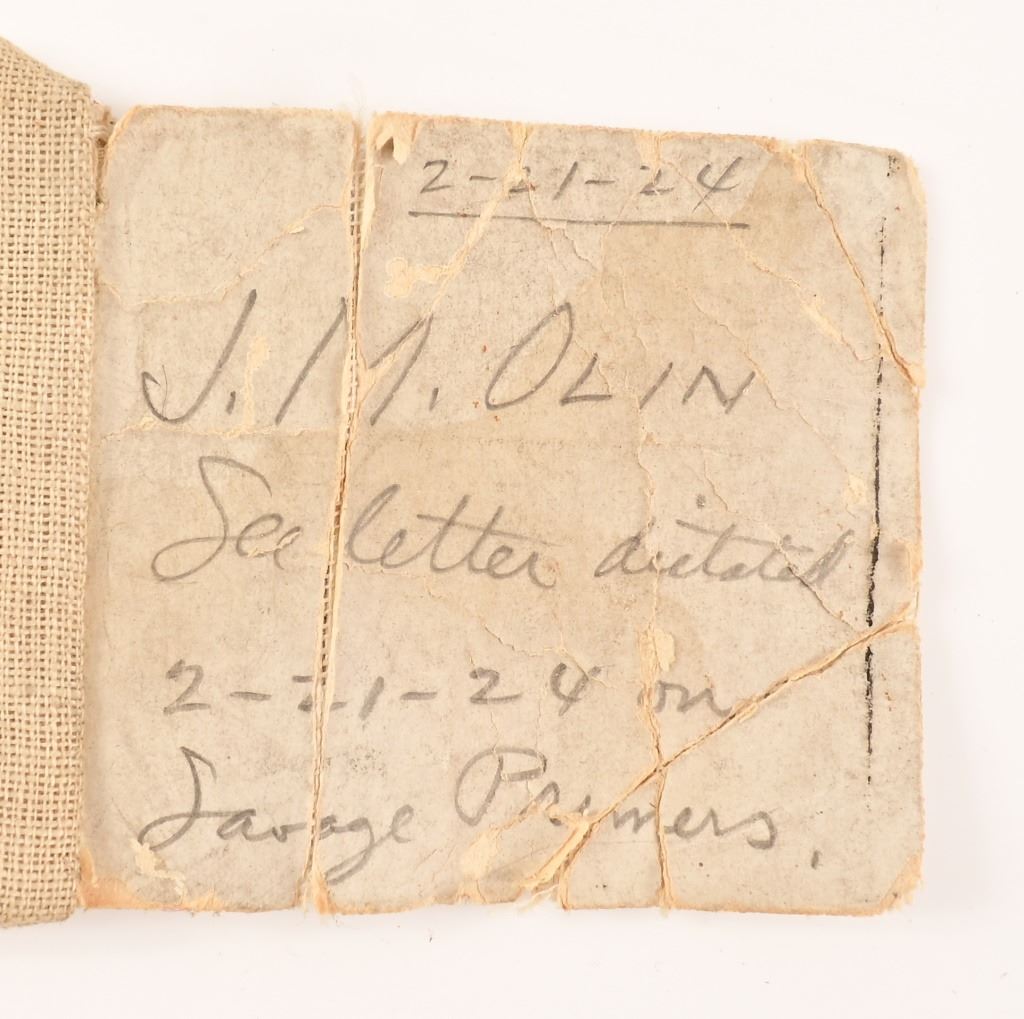 2-21-24
J. M. OLIN
See letter dictated
2-21-24 on
Savage Primers.